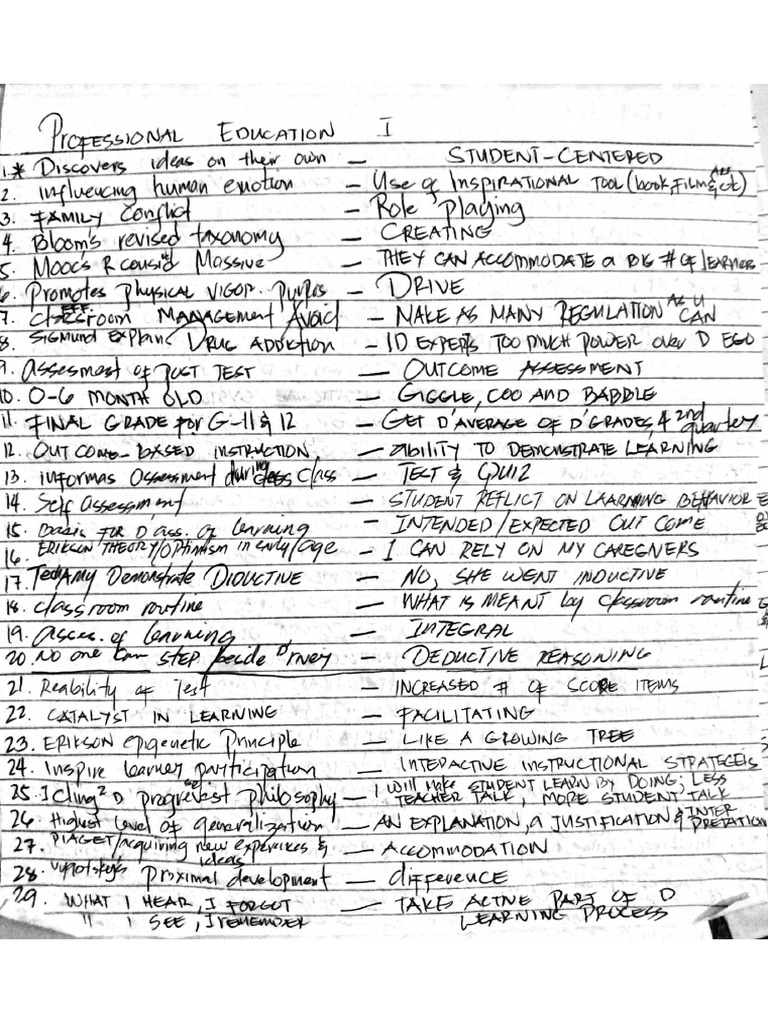 PROFESSIONAL EDUCATION I
1.* Discovers ideas on their own – STUDENT-CENTERED
2. influencing human emotion – Use of INSPIRATIONAL TOOL (book, FILM & ART etc)
3. FAMILY Conflict – Role playing
4. Bloom's revised taxonomy – CREATING
5. Mooc's R Massive – THEY CAN ACCOMMODATE a BIG # OF learners
6. Promotes physical VIGOR – DRIVE
7. classroom MANAGEMENT Avoid – MAKE AS MANY REGULATION AS U CAN
8. SIGMUND DRUG ADDICTION – ID EXPERTS TOO MUCH POWER over D EGO
9. Assesment of JUST TEST – OUTCOME ASSESSMENT
10. 0-6 MONTH OLD – GIGGLE, COO AND BABBLE
11. FINAL GRADE for G-11 & 12 – GET D'AVERAGE OF D'GRADES, 2nd quarter
12. OUTCOME-BASED INSTRUCTION – ability TO DEMONSTRATE LEARNING
13. informas Assessment during class – TEST & QUIZ
14. Self assessment – STUDENT REFLICT ON LEARNING BEHAVIOR
15. Basis FOR D'ass. of learning – INTENDED/EXPECTED OUT COME
16. ERIKSON THEORY/Optimism in early/age – I CAN RELY ON MY CAREGIVERS
17. Demonstrate DIDUCTIVE – NO, SHE WENT INDUCTIVE
18. classroom routine – WHAT IS MEANT by classroom routine
19. asses. of learning – INTEGRAL
20. NO one can STEP beside D'rivey – DEDUCTIVE REASONING
21. Reability of Test – INCREASED # OF SCORE ITEMS
22. CATALYST IN LEARNING – FACILITATING
23. ERIKSON epigenetic Principle – LIKE A GROWING TREE
24. Inspire learner participation – INTERACTIVE INSTRUCTIONAL STRATEGEIS
25. I Cling 2 D philosophy – I will make STUDENT LEARN BY DOING; LESS TEACHER TALK, MORE STUDENT TALK
26. Highest level of generalization – AN EXPLANATION, a JUSTIFICATION & INTERPRETATION
27. PIAGET/acquiring new experices & ideas – ACCOMMODATION
28. Proximal development – difference
29. WHAT I HEAR, I FORGOT – TAKE ACTIVE PART OF D
" I SEE, I REMEMBER LEARNING PROCESS